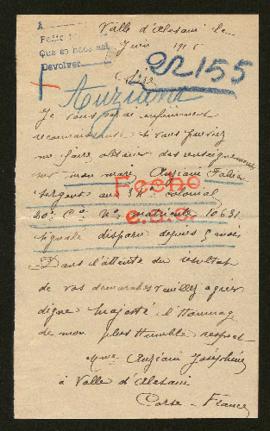 Valle d'Alesani le
Juin 191
A
Devolver
22155
Sire
Auziani
Je vous serai infiniment
reconnaissante si vous pouviez
me faire obtenir des renseignements
sur mon mari, Auziani Félix
sergent au 4e colonial
20e Cie No matricule 10631
signalé disparu depuis 9 mois
Fecho
Dans l'attente du résultat
de vos demarches veuillez agréer
digne Majesté l'Hommage
de mon plus humble respect
Mme Auziani Joséphine
à Valle d'Alesani
Corse - France